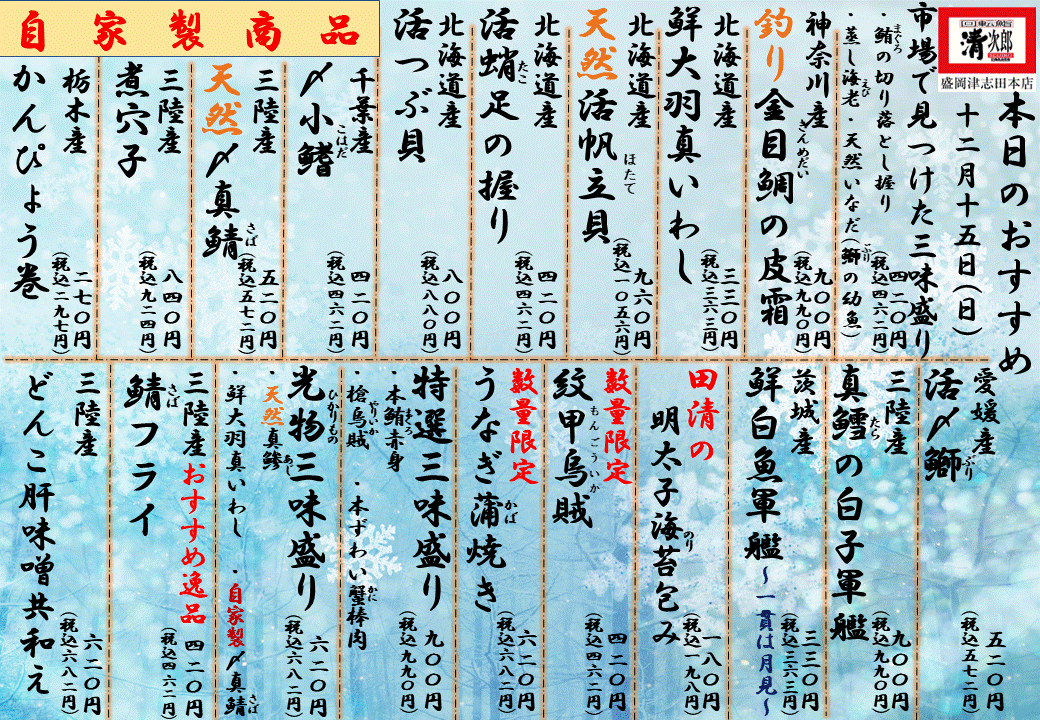 回転鮨
清次郎
盛岡津志田本店
本日のおすすめ
十二月十五日(日)
市場で見つけた三味盛り
・鮪の切り落とし握り
まぐろ
・蒸し海老・天然いなだ(鰤の幼魚)
えび
ぶり
四二〇円
(税込四六二円)
神奈川産
釣り金目鯛の皮霜
きんめだい
九〇〇円
(税込九九〇円)
北海道産
鮮大羽真いわし
三三〇円
(税込三六三円)
北海道産
天然活帆立貝
ほたて
九六〇円
(税込一〇五六円)
北海道産
活蛸足の握り
たこ
四二〇円
(税込四六二円)
北海道産
活つぶ貝
八〇〇円
(税込八八〇円)
自家製商品
千葉産
〆小鰭
こはだ
四二〇円
(税込四六二円)
三陸産
天然〆真鯖
さば
五二〇円
(税込五七二円)
三陸産
煮穴子
八四〇円
(税込九二四円)
栃木産
かんぴょう巻
二七〇円
(税込二九七円)
愛媛産
活〆鰤
ぶり
五二〇円
(税込五七二円)
三陸産
真鱈の白子軍艦
たら
九〇〇円
(税込九九〇円)
茨城産
鮮白魚軍艦~一貫は月見~
三三〇円
(税込三六三円)
田清の
明太子海苔包み
のり
一八〇円
(税込一九八円)
数量限定
紋甲烏賊
もんごういか
四二〇円
(税込四六二円)
数量限定
うなぎ蒲焼き
かば
六二〇円
(税込六八二円)
特選三味盛り
・本鮪赤身
まぐろ
・槍烏賊・本ずわい蟹棒肉
やりいか
かに
九〇〇円
(税込九九〇円)
光物三味盛り
ひかりもの
・天然真鯵
あじ
・鮮大羽真いわし・自家製〆真鯖
さば
六二〇円
(税込六八二円)
三陸産おすすめ逸品
鯖フライ
さば
四二〇円
(税込四六二円)
三陸産
どんこ肝味噌共和え
六二〇円
(税込六八二円)